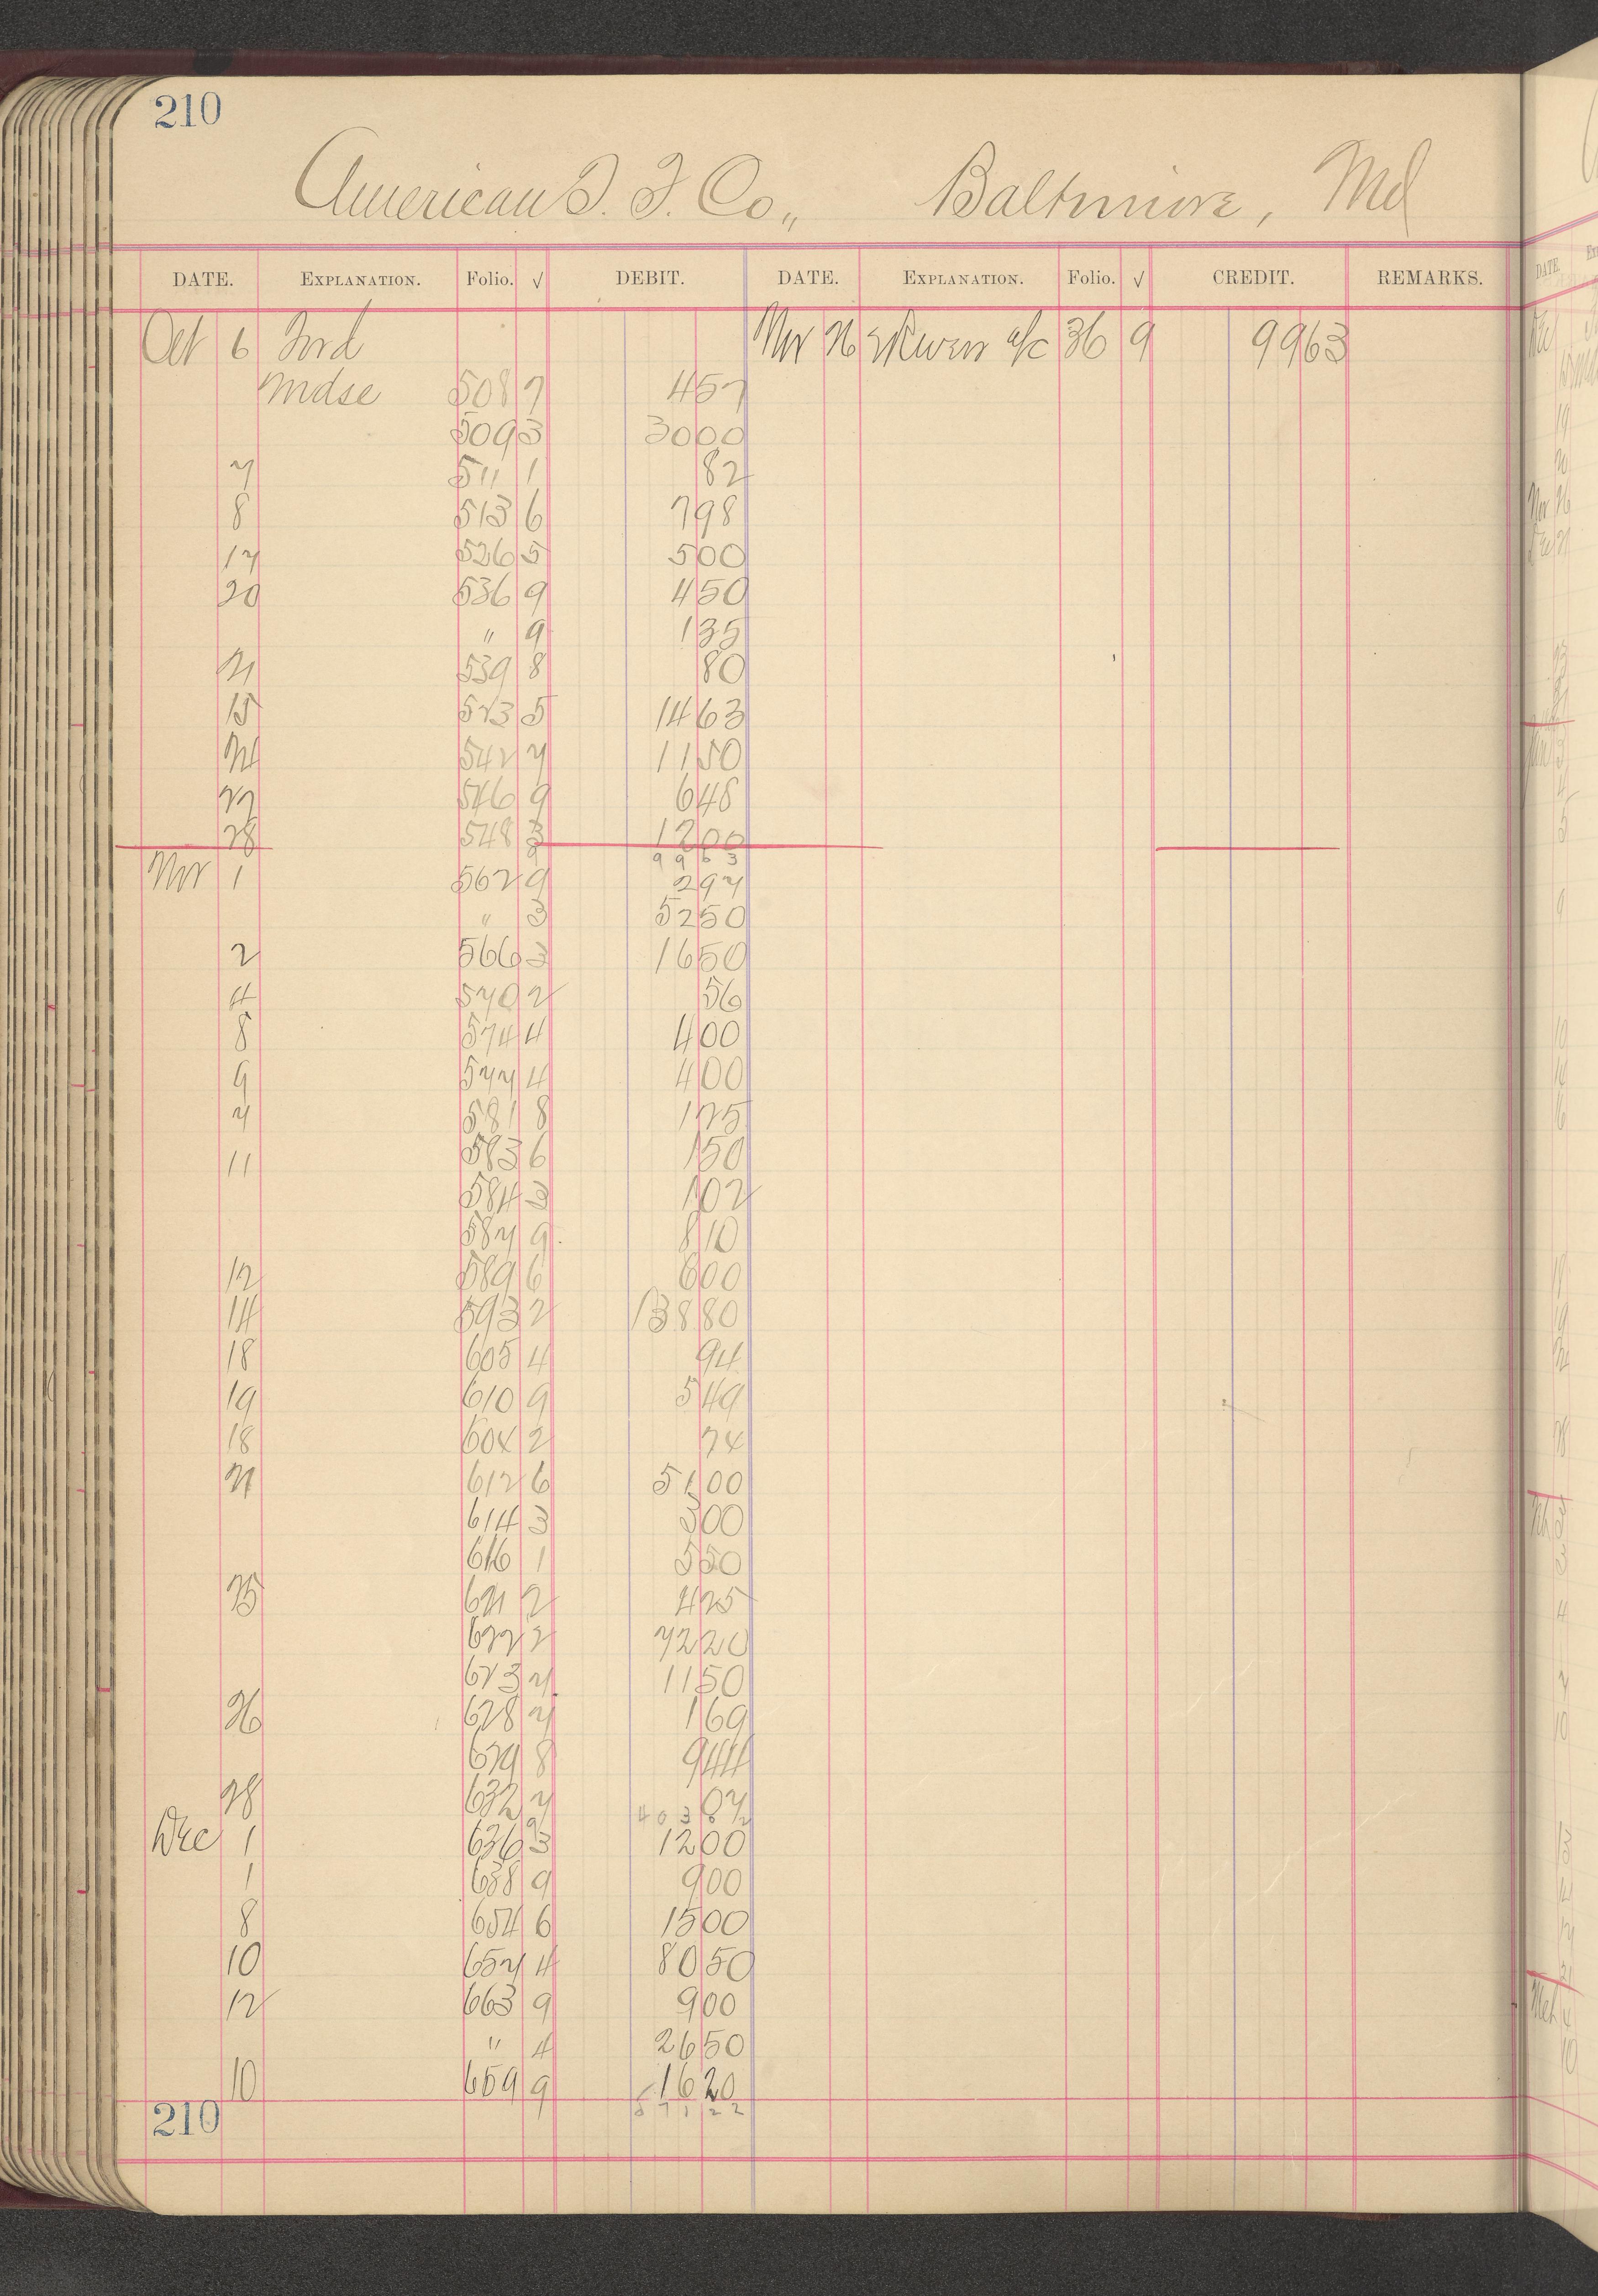 210
American I. I. Co., Baltimore, Md
DATE. EXPLANATION. Folio. √ DEBIT. DATE. EXPLANATION. Folio. √ CREDIT. REMARKS.
Oct 6 Ford Nov 26 a/c 36 9 9963
Mdse 508 7 457
509 3 3000
7 511 1 82
8 513 6 798
17 526 5 500
20 536 9 450
" 9 135
21 539 8 80
15 523 5 1463
24 542 7 1150
27 546 9 648
28 548 3 1200
9963
Nov 1 562 9 297
" 3 5250
2 566 3 1650
4 570 2 56
8 574 4 400
9 577 4 400
7 581 8 125
11 583 6 150
584 3 102
587 9 810
12 589 6 600
14 593 2 13880
18 605 4 94
19 610 9 549
18 604 2 74
21 612 6 5100
614 3 300
616 1 550
25 621 2 425
622 2 7220
623 7 1150
26 628 7 169
629 8 944
28 632 7 87
Dec 1 636 3 1200
1 638 9 900
8 654 6 1500
10 657 4 8050
12 663 9 900
" 4 2650
10 659 9 1620
57122
210